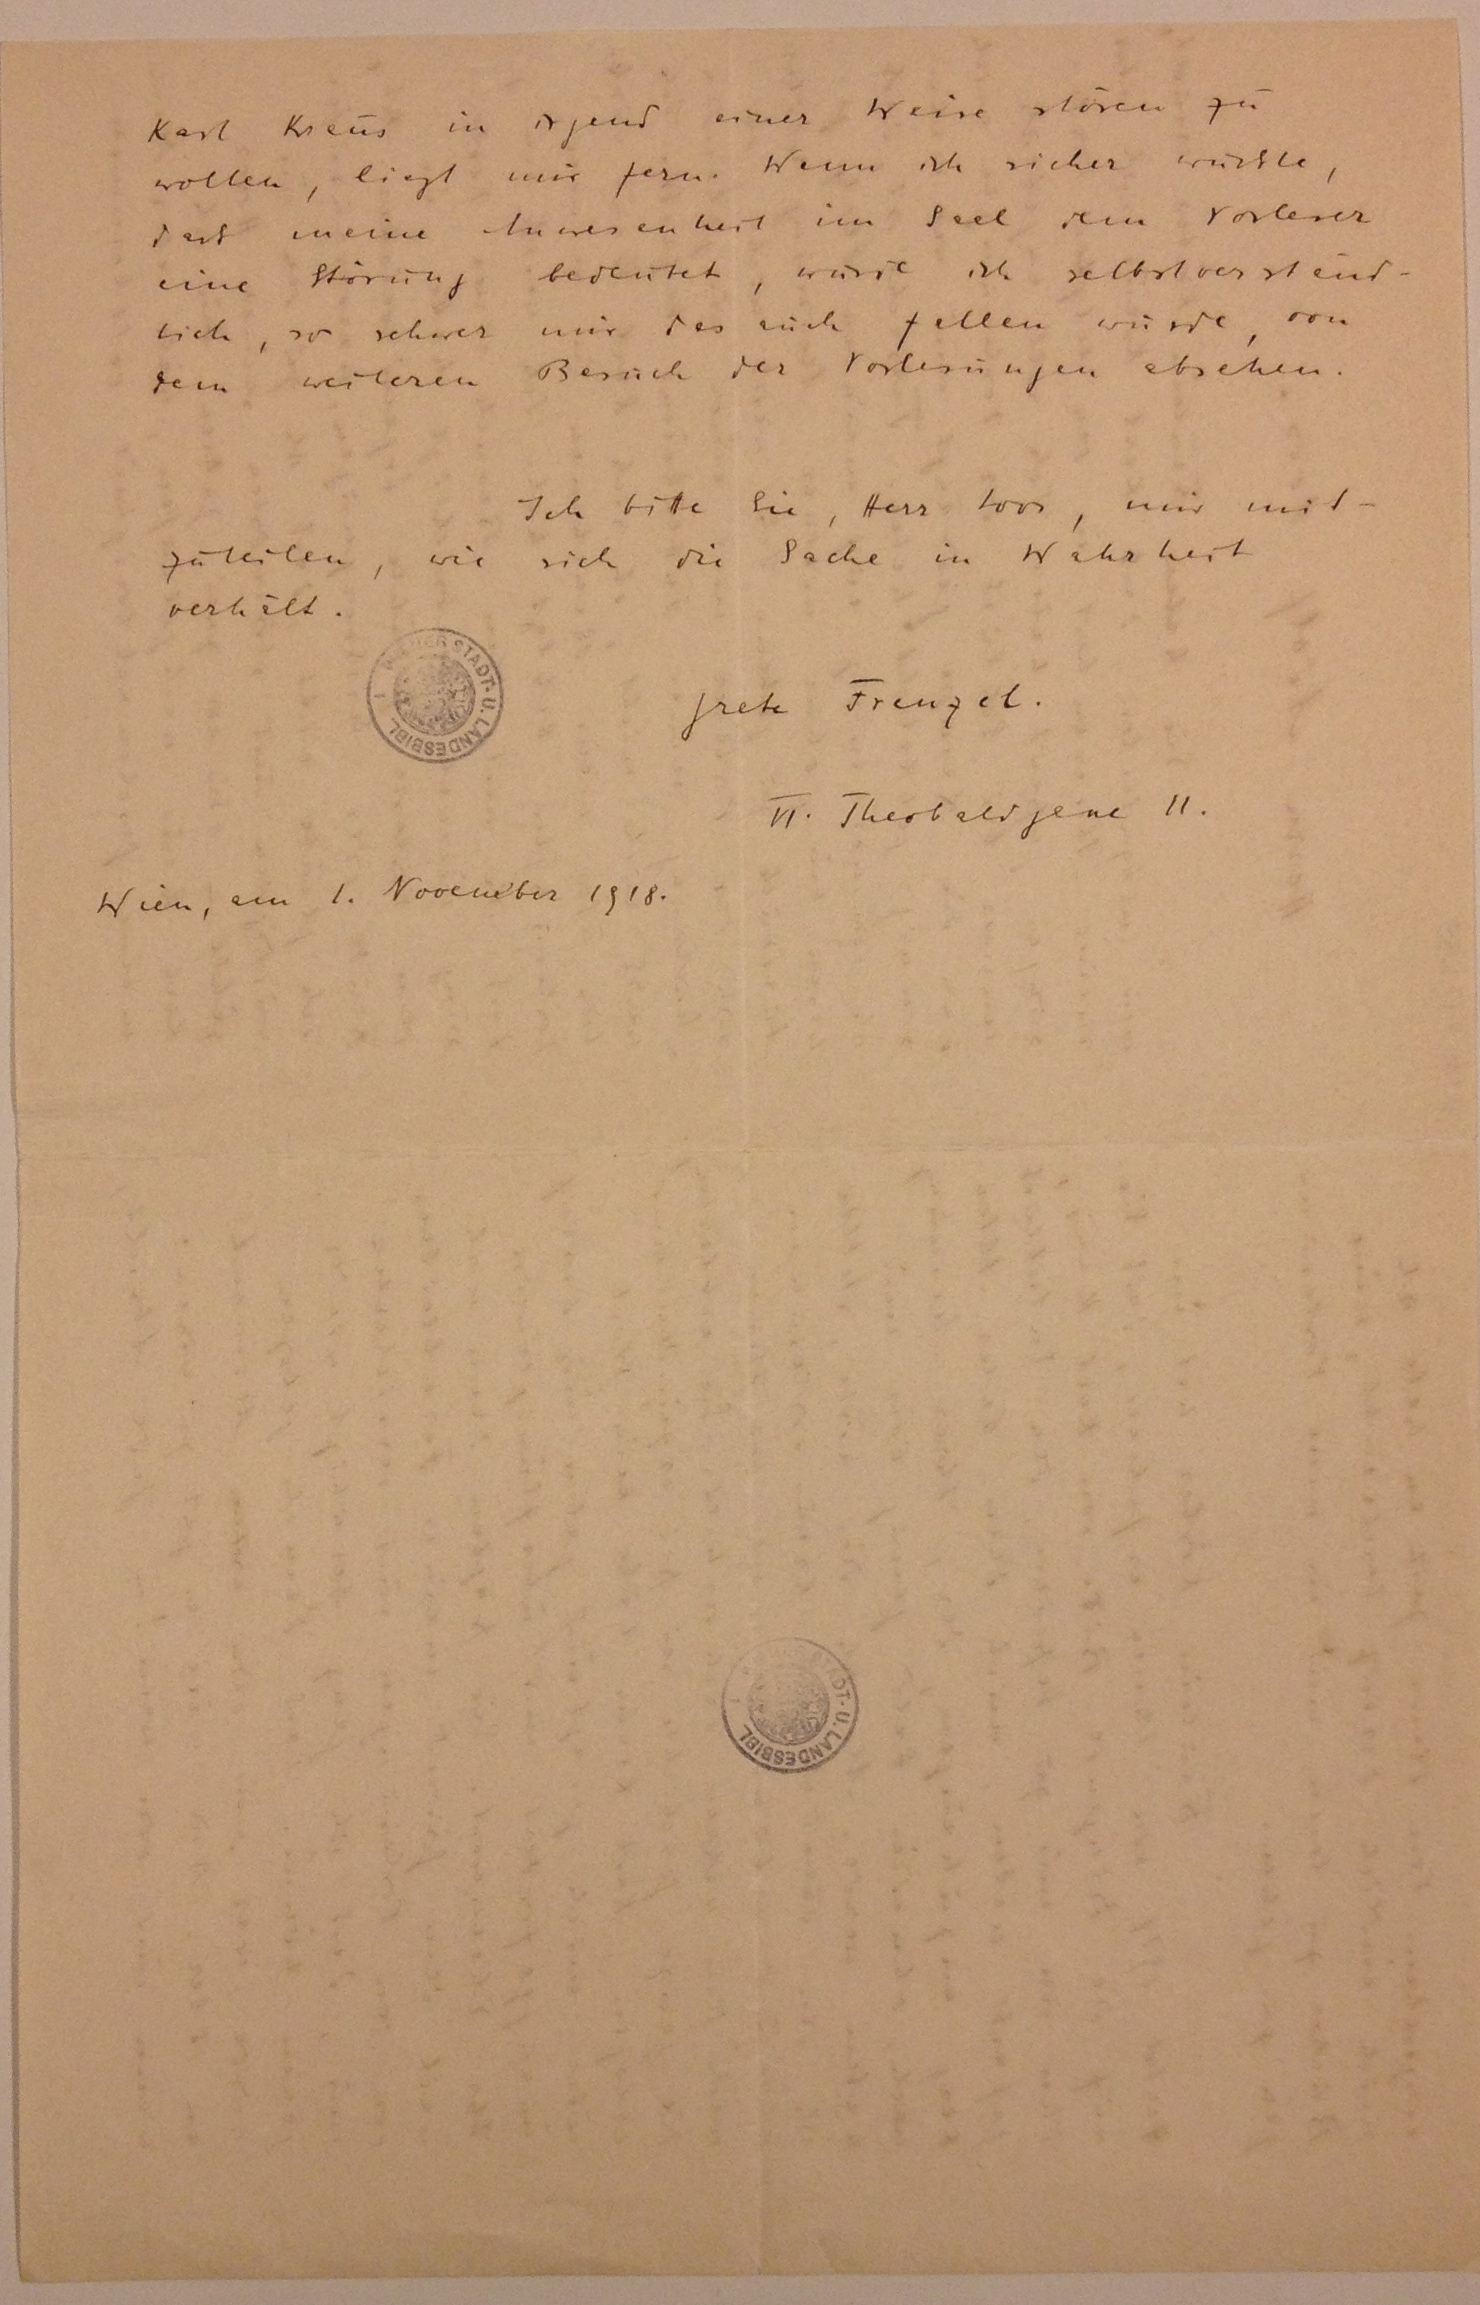 Karl Kraus in irgend einer Weise stören zu
wollen, liegt mir fern. Wenn ich sicher wüsste,
dass meine Anwesenheit im Saal dem Vorleser
eine Störung bedeutet, würde ich selbstverständ-
lich, so schwer mir das auch fallen würde, von
dem weiteren Besuch der Vorlesungen absehen.
Ich bitte Sie, Herr Loos, mir mit-
zuteilen, wie sich die Sache in Wahrheit
verhält.
WIENER STADT- U. LANDESBIBL
Grete Frenzel.
VI. Theobaldgasse 11.
Wien, am 1. November 1918.
STADT- U. LANDESBIBL